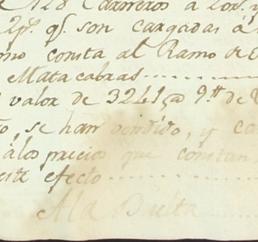 de 128 Carneros a los
2 ps. qs. son cargadas á
como consta al Ramo de
Matacabras
valor de 3241
se han vendido, y
á los precios que constan
este efecto
A la Buelta